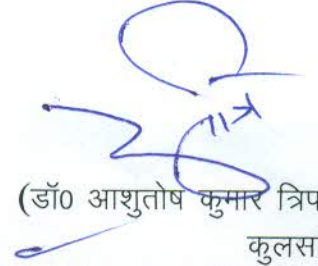 (डॉ0 आशुतोष कुमार त्रिप
कुलस